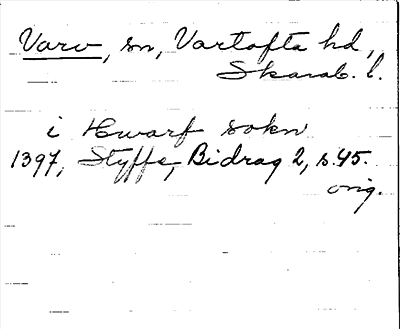 Varv, sn, Vartofta hd,
Skarab. l.
i Hwarf sokn
1397, Styffe, Bidrag 2, s. 45.
orig.